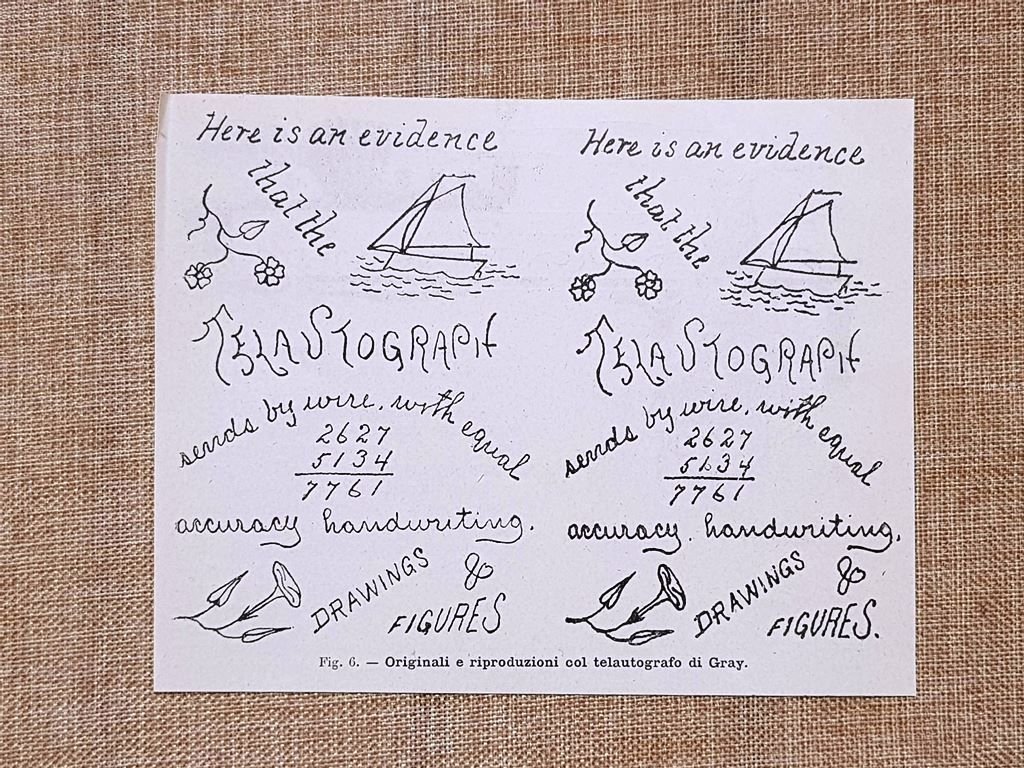 Here is an evidence
that the
TELAUTOGRAPH
sends by wire, with equal
2627
5134
7761
accuracy handwriting.
DRAWINGS &
FIGURES
Here is an evidence
that the
TELAUTOGRAPH
sends by wire, with equal
2627
5134
7761
accuracy. handwriting,
DRAWINGS &
FIGURES.
Fig. 6. — Originali e riproduzioni col telautografo di Gray.